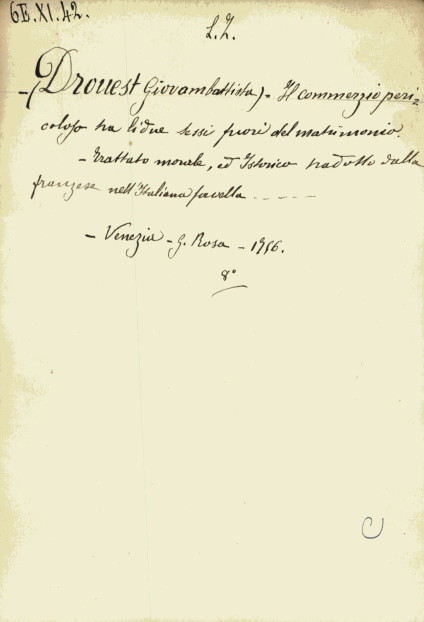 6E.XI.42.
L.Z.
-(Drouest Giovambattista)- Il commerzio peri-
coloso tra li due sessi fuori del matrimonio.
- Trattato morale, ed Istorico tradotto dalla
franzese nell'Italiana favella - - - -
- Venezia - G. Rosa - 1756.
8°
C